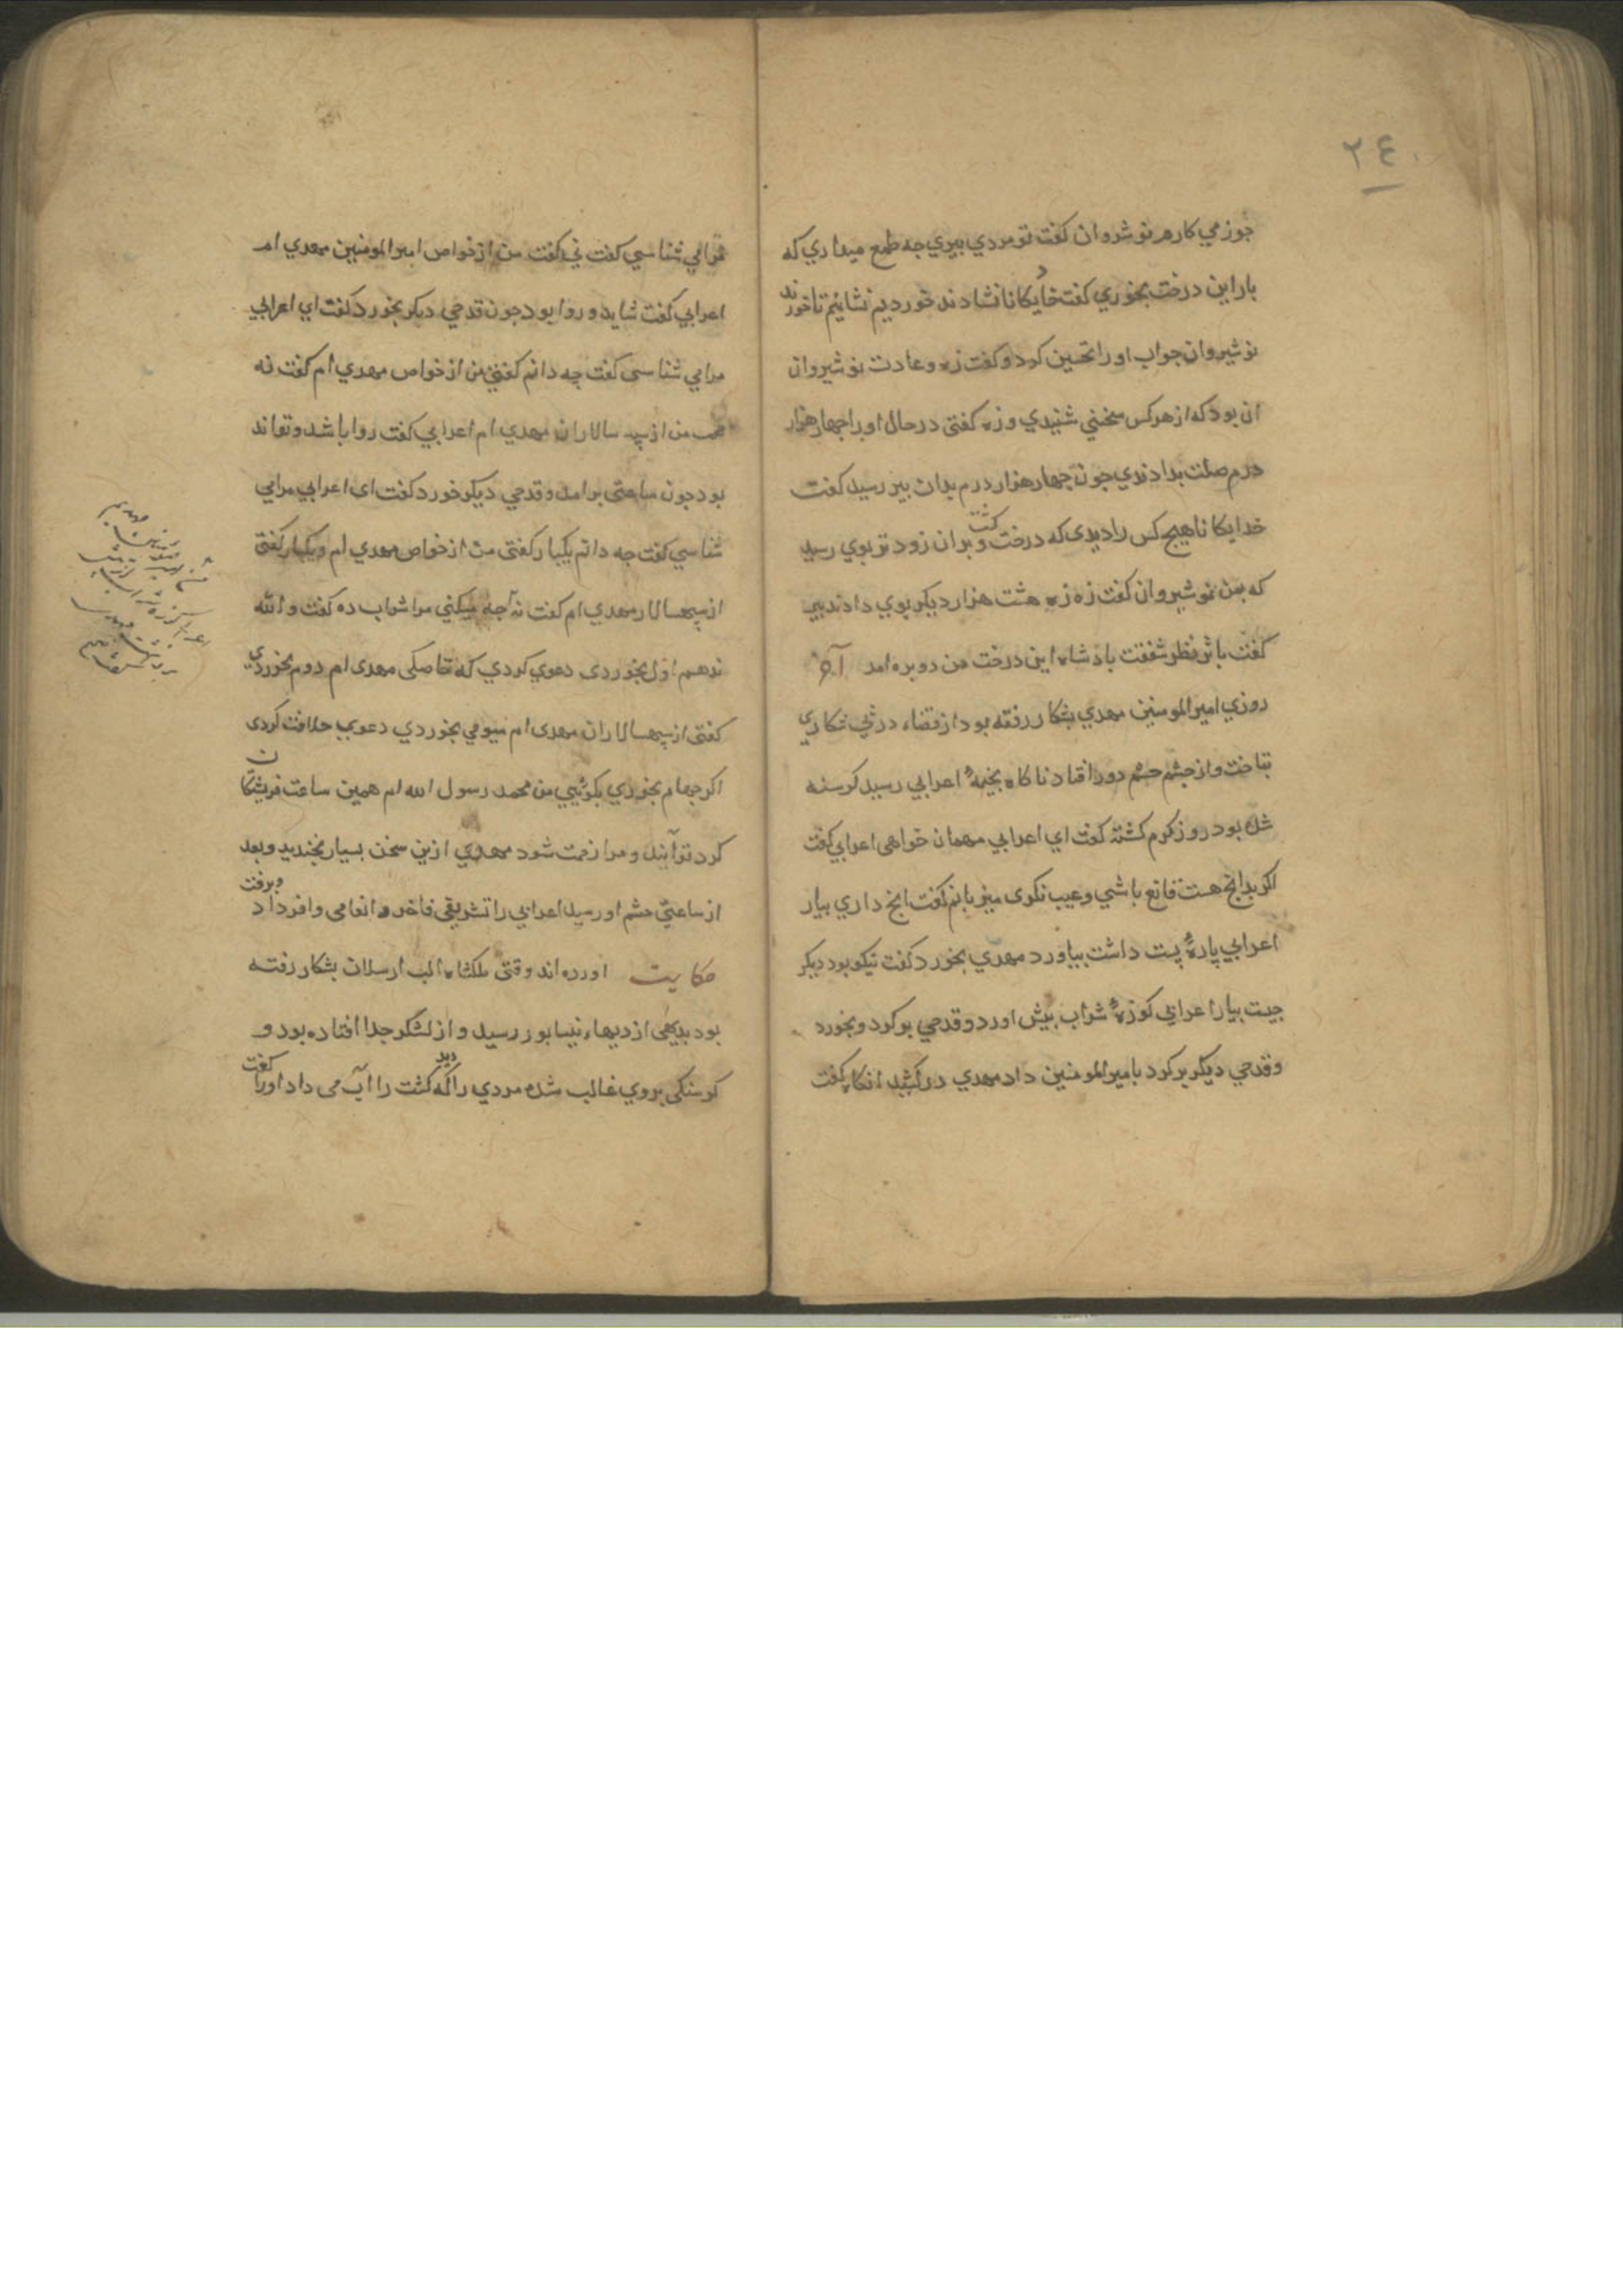 ٢٤
جوز می کارم نوشروان کفت تو مردی پیری جه طمع میداری که
بار این درخت بخوری کفت خدایکانا نشاندند خوردیم نشانیم تا خورند
نوشیروان جواب او را تحسین کرد و کفت زه و عادت نوشیروان
ان بود که از هر کس سخنی شنیدی و زه کفتی در حال او را جهار هزار
درم صلت بدادندی جون جهار هزار درم بدان پیر رسید کفت
خدایکانا هیچ کس را دیدی که درخت کشت و بر ان زود تر بوی رسید
که بمن نوشیروان کفت زه زه هشت هزار دیکر بوی دادند پیر
کفت باثر نظر شفقت بادشاه این درخت من دوبره امد
روزی امیر المومنین مهدی بشکار رفته بود از قضاء در پی شکاری
بتاخت و از جشم حشم دور افتاد ناکاه بخیمهٔ اعرابی رسید کرسنه
شده بود و روز کرم کشته کفت ای اعرابی مهمان خواهی اعرابی کفت
اکر بدانچ هست قانع باشی و عیب نکوی میزبانم کفت انچ داری بیار
اعرابی پارهٔ پست داشت بیاورد مهدی بخورد کفت نیکو بود دیکر
جیست بیار اعرابی کوزهٔ شراب پیش اورد و قدحی بر کرد و بخورد
و قدحی دیکر بر کرد بامیر المومنین داد مهدی درکشید انکاه کفت
تو مرا می شناسی کفت نی کفت من از خواص امیر المومنین مهدی ام
اعرابی کفت شاید و روا بود جون قدحی دیکر بخورد کفت ای اعرابی
مرا می شناسی کفت جه دانم کفتی من از خواص مهدی ام کفت نه
من از سپه سالاران مهدی ام اعرابی کفت روا باشد و تواند
بود جون ساعتی برامد و قدحی دیکر خورد کفت ای اعرابی مرا می
شناسی کفت جه دانم یکبار کفتی من از خواص مهدی ام و یکبار کفتی
از سپهسالار مهدی ام کفت نه آجه میکنی مرا شراب ده کفت والله
ندهم اول بخوردی دعوی کردی که خاصکی مهدی ام دوم بخوردی
کفتی از سپهسالاران مهدی ام سیومی بخوردی دعوی خلافت کردی
اکر جهارم بخوری بکوئیی من محمد رسول الله ام همین ساعت فریشتکان
کرد تو آیند و مرا زحمت شود مهدی ازین سخن بسیار بخندید و بعد
از ساعتی حشم او رسید اعرابی را تشریفی فاخر و انعامی وافر داد و برفت
حکایت اورده اند وقتی ملکشاه الب ارسلان بشکار رفته
بود بدیهی از دیهاء نیسابور رسید و از لشکر جدا افتاده بود و
کرسنکی بر وی غالب شده مردی را دید که کشت را آب می داد او را کفت